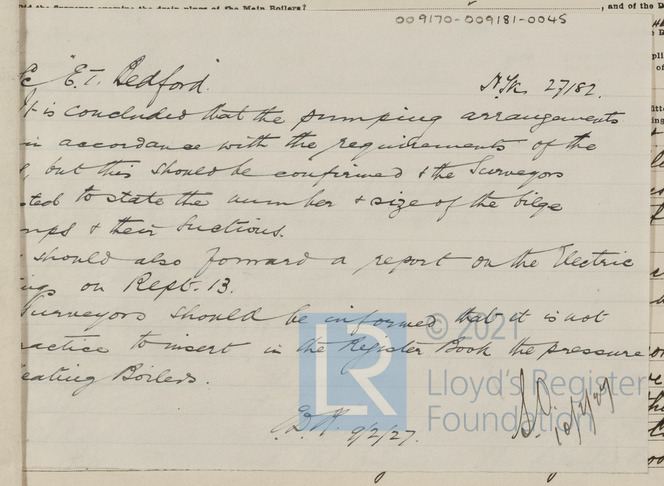 Did the Surveyor examine the drain plugs of the Main Boilers?
, and of the D
009170-009181-0045
"E.T. Bedford". N.Yk. 27182.
It is concluded that the pumping arrangements
in accordance with the requirements of the
, but this should be confirmed & the Surveyors
ted to state the number & size of the bilge
mps & their suctions.
should also forward a report on the Electric
ing on Rept. 13.
Surveyors should be informed that it is not
ractice to insert in the Register Book the pressure
eating Boilers.
9/2/27.
10/2/27
LR
© 2021
Lloyd's Register
Foundation